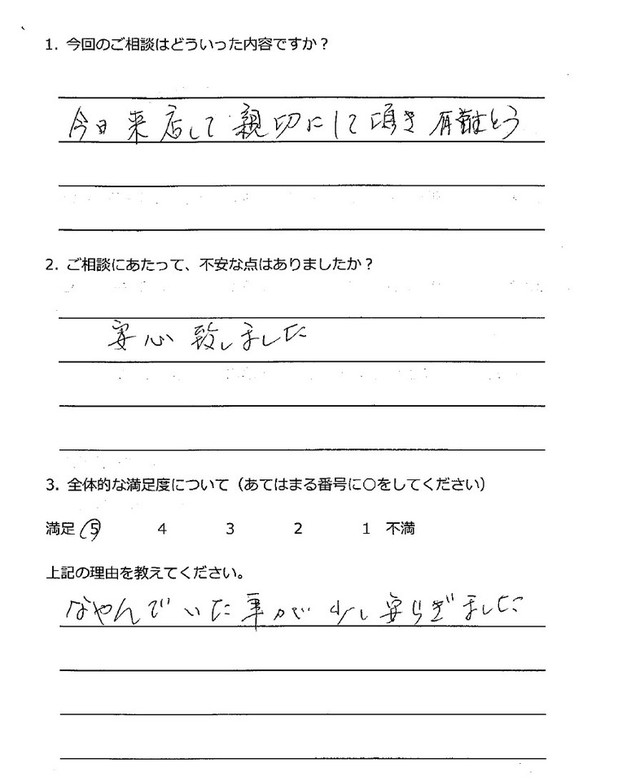 1. 今回のご相談はどういった内容ですか？
今日来店して親切にして頃き有難とう
2. ご相談にあたって、不安な点はありましたか？
安心致しました
3. 全体的な満足度について（あてはまる番号に○をしてください）
満足 5 4 3 2 1 不満
上記の理由を教えてください。
なやんでいた事が少し安らぎました